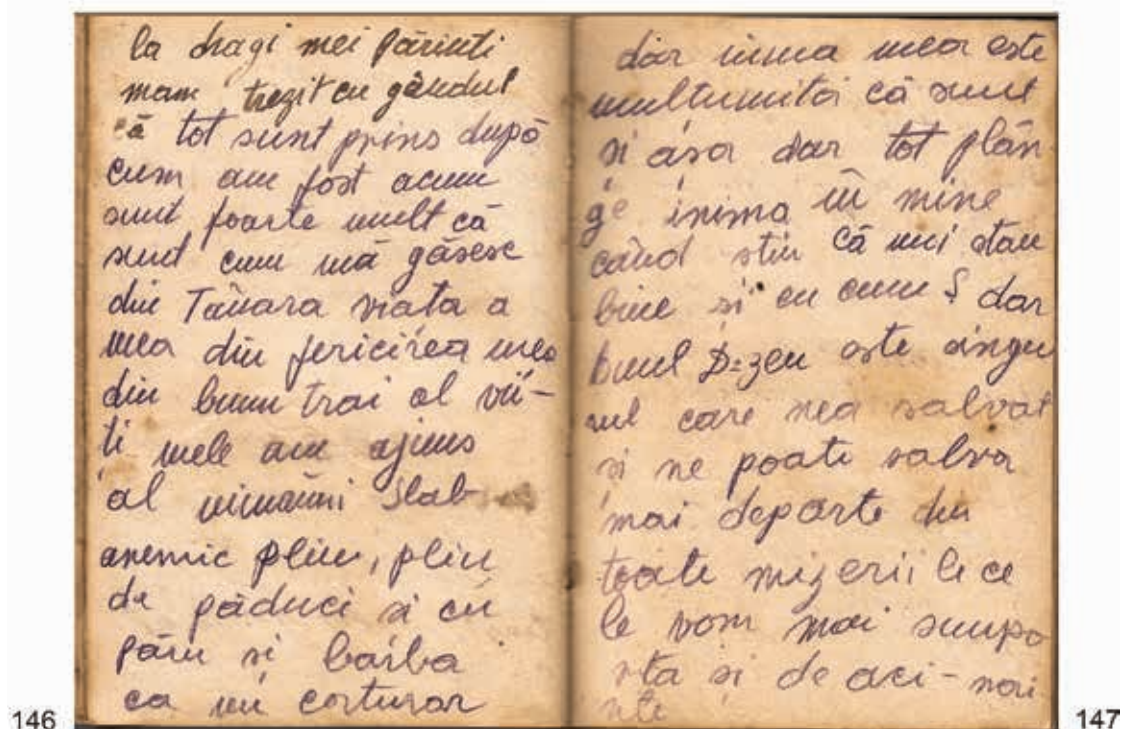 la dragi mei părinti
mam trezit cu gândul
că tot sunt prins după
cum am fost acum
sunt foarte mult că
sunt cum mă găsesc
din Tânara viata a
mea din fericirea mea
din bunu trai al vii-
ti mele am ajuns
al nimănui slab
anemic plin, plin
de păduci si cu
păru si barba
ca un corturar
146
dar inima mea este
multumită că sunt
si asa dar tot plân
ge inima în mine
când stiu că unii stau
bine si eu cum? dar
bunul D-zeu este singu
rul care nea salvat
si ne poate salva
mai departe din
toate mizeriile ce
le vom mai supo
rta si de aci-nai
nte
147